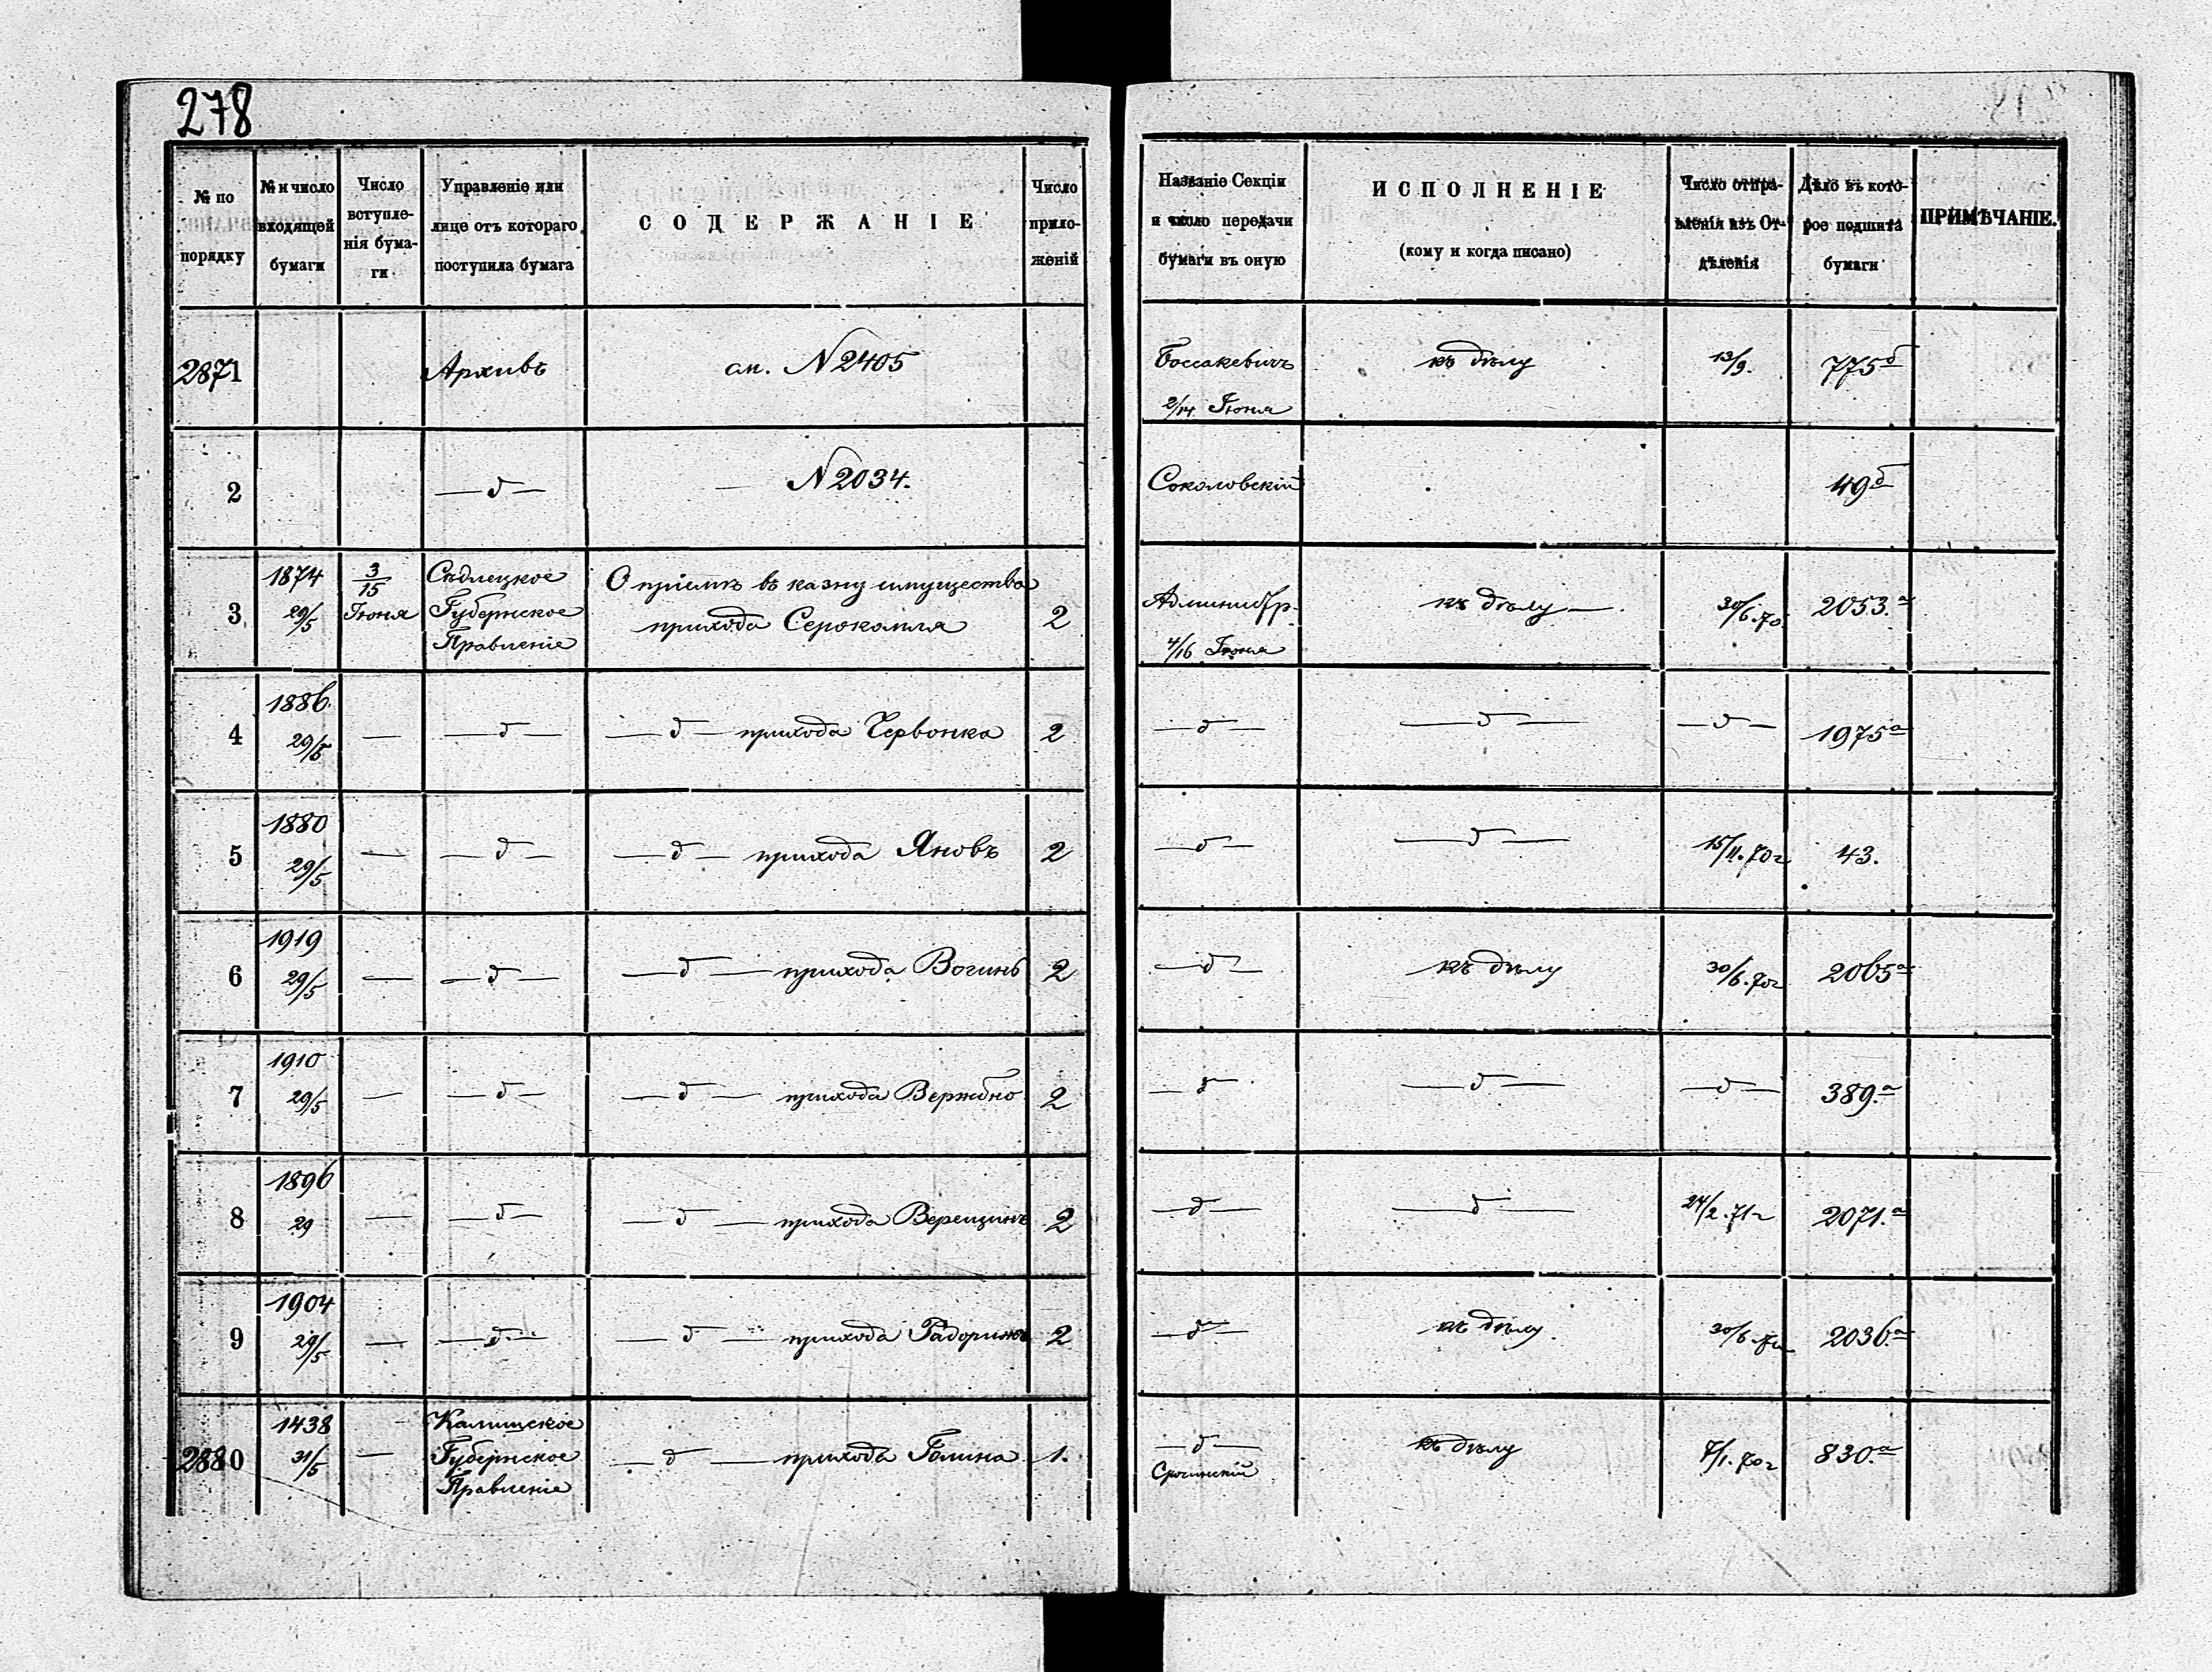 278
№ по порядку
№ и число входящей бумаги
Число вступле- нія бума- ги
Управленіе или лице отъ котораго поступила бумага
СОДЕРЖАНІЕ
Число прило- женій
Названіе Секціи и число передачи бумаги въ оную
ИСПОЛНЕНІЕ (кому и когда писано)
Число отпра- вленія изъ От- дѣленія
Дѣло въ кото- рое подшита бумаги
ПРИМѢЧАНІЕ.
2871 Архивъ см. N 2405 Боссакевичъ 2/14 Іюня къ дѣлу 13/9. 775б
2 — д — — N 2034. Соколовскій 49б
3 1874 29/5 3/15 Іюня Сѣдлецкое Губернское Правленіе О пріемѣ въ казну имущества прихода Серокомля 2 Администр. 4/16 Іюня къ дѣлу — 30/6.70. 2053.а
4 1886. 29/5 — — д — — д — прихода Червонка 2 — д — — д — — д — 1975а
5 1880 29/5 — — д — — д — прихода Яновъ 2 — д — — д — 15/11.70г 43.
6 1919 29/5 — — д — — д — прихода Вогинь 2 — д — къ дѣлу 30/6.70г 2065а
7 1910 29/5 — — д — — д — прихода Вержбно 2 — д — — д — — д — 389.а
8 1896 29 — — д — — д — прихода Верещинъ 2 — д — — д — 24/2.71г 2071.а
9 1904 29/5 — — д — — д — прихода 2 — д — къ дѣлу. 30/6 2036.а
2880 1438 31/5 — Калишское Губернское Правленіе — д — прихода Голина 1. — д — къ дѣлу 7/1.70г 830.а